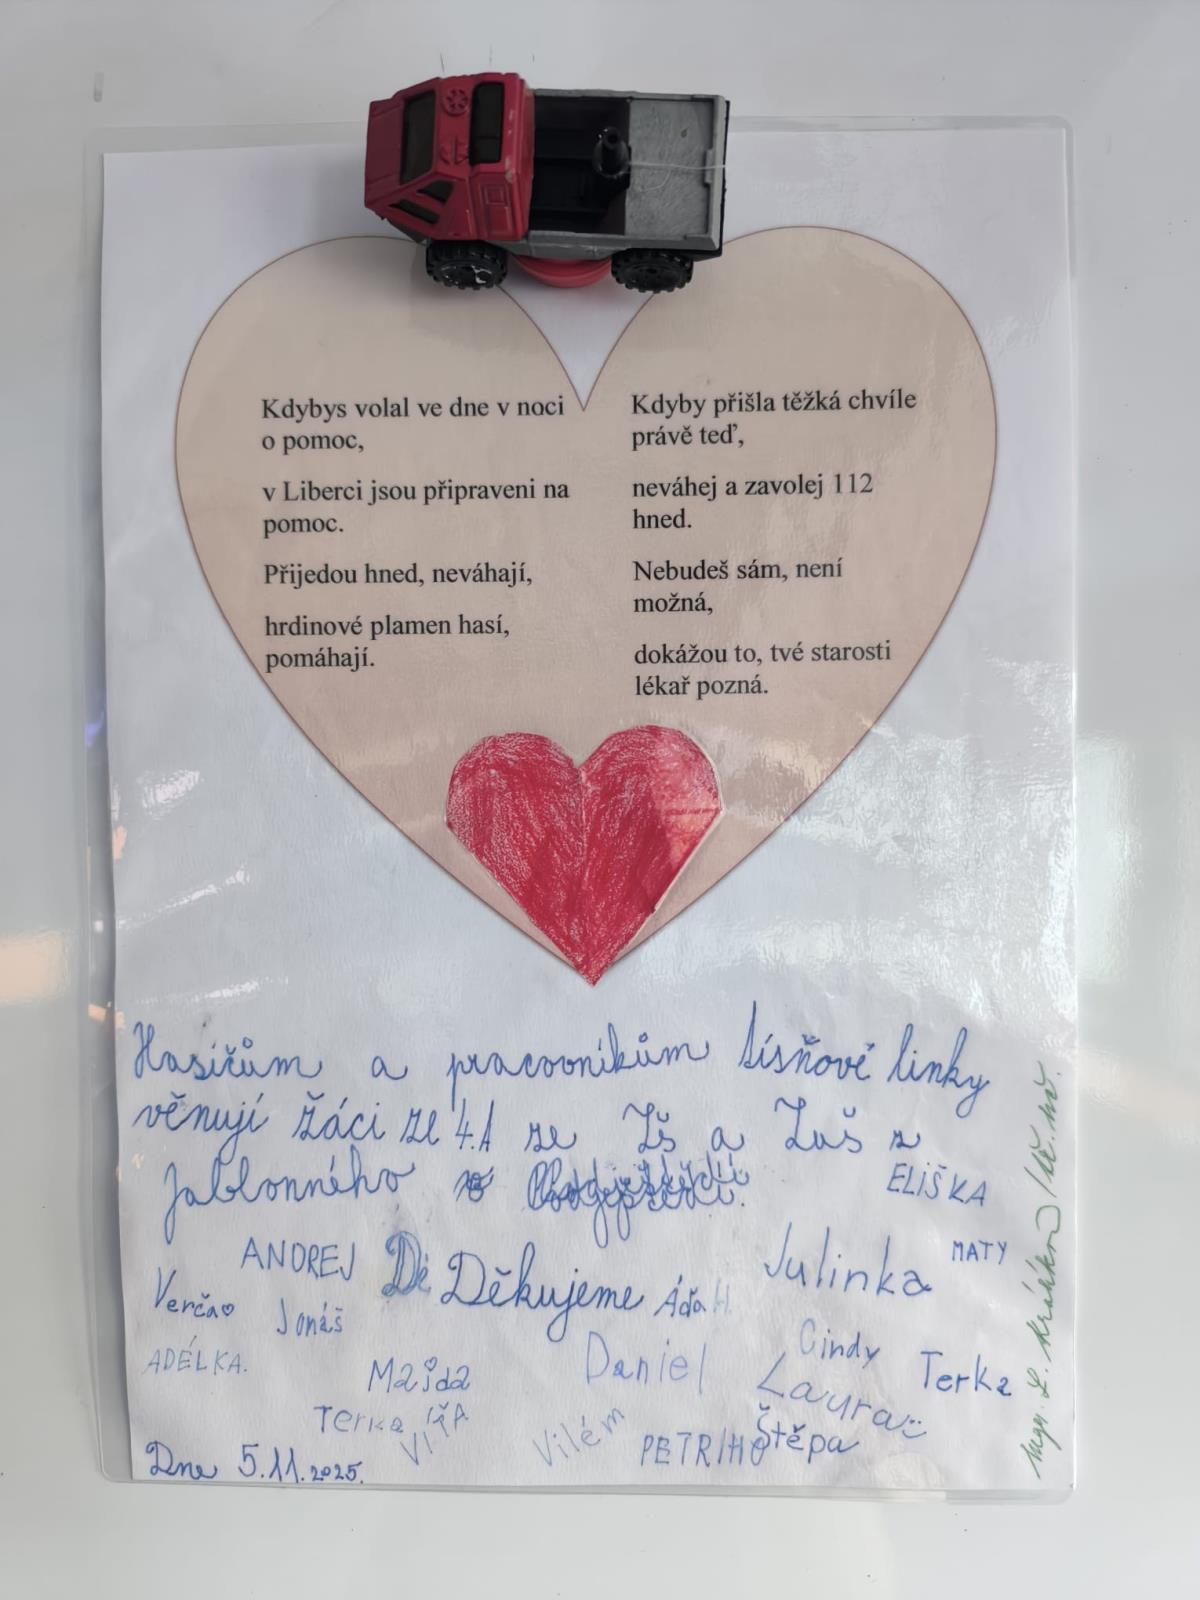 Kdybys volal ve dne v noci
o pomoc,
v Liberci jsou připraveni na
pomoc.
Přijedou hned, neváhají,
hrdinové plamen hasí,
pomáhají.
Kdyby přišla těžká chvíle
právě teď,
neváhej a zavolej 112
hned.
Nebudeš sám, není
možná,
dokážou to, tvé starosti
lékař pozná.
Hasičům a pracovníkům tísňové linky
věnují žáci ze 4.A ze Zš a Zuš z
Jablonného
ELIŠKA
ANDREJ Dě Děkujeme Julinka MATY
Verča Jonáš Áďa H.
ADÉLKA. Majda Daniel Cindy Terka
Terka Laura
VÍŤA Vilém Štěpa
Dne 5.11.2025.
Mgr. L.